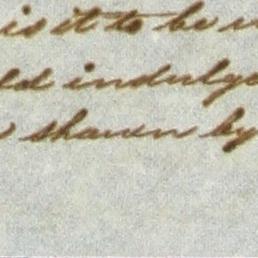 is it to be
ld indulge
shawn by